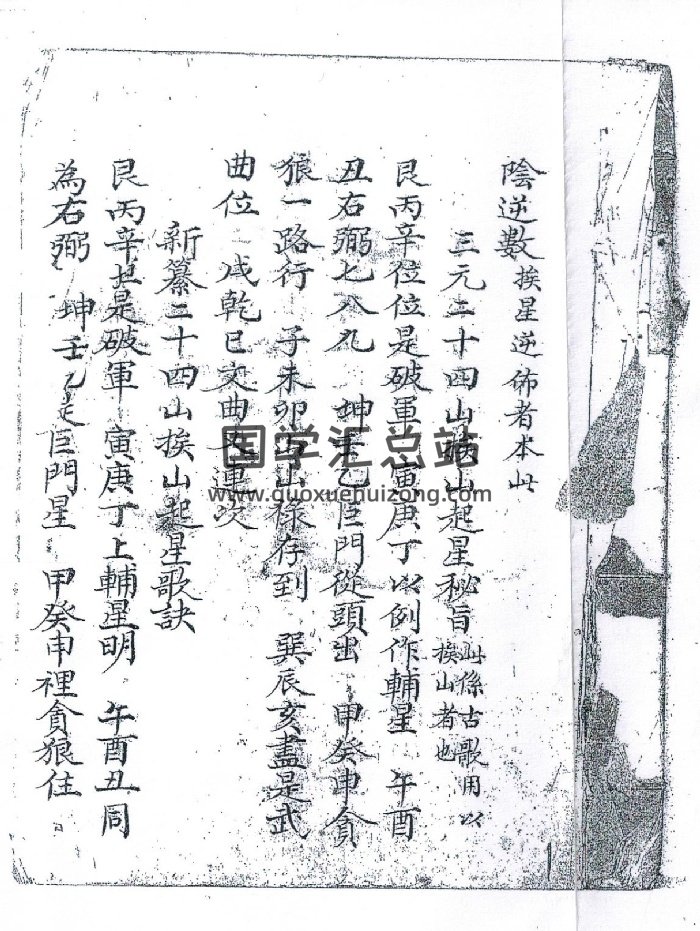 陰逆數 挨星逆佈者本此
三元二十四山挨山起星秘旨 此係古歌用以挨山者也
艮丙辛位位是破軍 寅庚丁以例作輔星 午酉
丑右弼七八九 坤壬乙巨門從頭出 甲癸申貪
狼一路行 子未卯 山祿存到 巽辰亥盡是武
曲位 戌乾巳文曲 連次
新纂二十四山挨山起星歌訣
艮丙辛 是破軍 寅庚丁上輔星明 午酉丑同
為右弼 坤壬乙 巨門星 甲癸申裡貪狼住
国学汇总站
www.guoxuehuizong.com